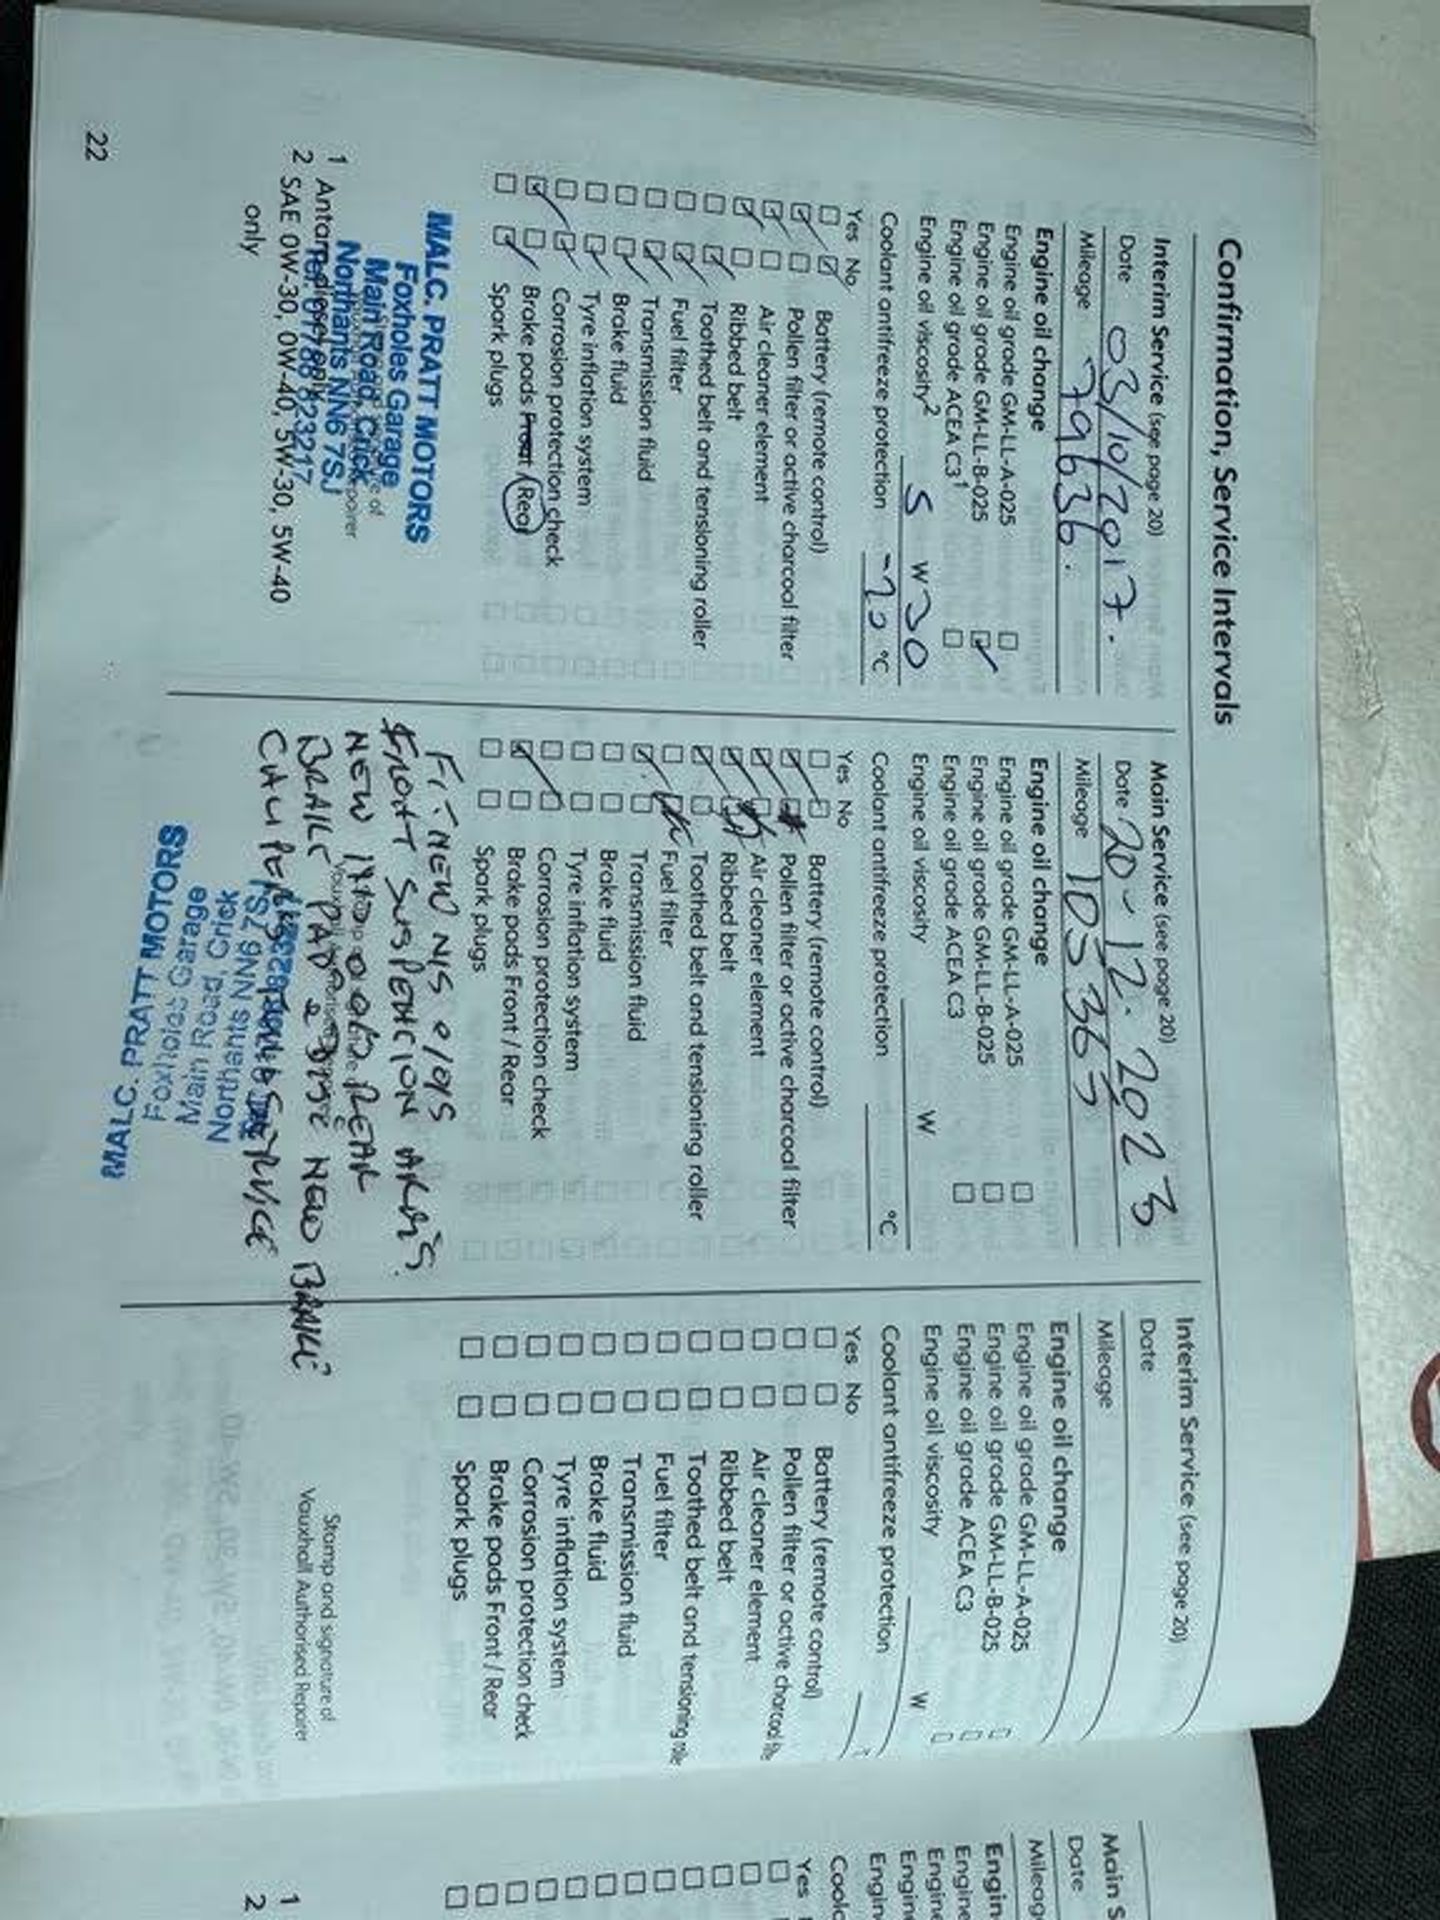 Confirmation, Service Intervals
Interim Service (see page 20)
Date 03/10/2017.
Mileage 79636.
Engine oil change
Engine oil grade GM-LL-A-025
Engine oil grade GM-LL-B-025
Engine oil grade ACEA C3¹
Engine oil viscosity² 5 W 30
Coolant antifreeze protection -20 °C
Yes No
Battery (remote control)
Pollen filter or active charcoal filter
Air cleaner element
Ribbed belt
Toothed belt and tensioning roller
Fuel filter
Transmission fluid
Brake fluid
Tyre inflation system
Corrosion protection check
Brake pads Front / Rear
Spark plugs
MALC. PRATT MOTORS
Foxholes Garage
Main Road, Crick
Northants NN6 7SJ
Tel. 01788 823217
1
2 SAE 0W-30, 0W-40, 5W-30, 5W-40
only
22
Main Service (see page 20)
Date 20-12-2023
Mileage 105367
Engine oil change
Engine oil grade GM-LL-A-025
Engine oil grade GM-LL-B-025
Engine oil grade ACEA C3
Engine oil viscosity W
Coolant antifreeze protection °C
Yes No
Battery (remote control)
Pollen filter or active charcoal filter
Air cleaner element
Ribbed belt
Toothed belt and tensioning roller
Fuel filter
Transmission fluid
Brake fluid
Tyre inflation system
Corrosion protection check
Brake pads Front / Rear
Spark plugs
FIT NEW N/S O/S
FRONT SUSPENCION ARMS.
NEW REAR
BRAKE PAD & DISC NEW BRAKE
CALIPERS SERVICE
Northants NN6 7SJ
Main Road, Crick
Foxholes Garage
MALC. PRATT MOTORS
Interim Service (see page 20)
Date
Mileage
Engine oil change
Engine oil grade GM-LL-A-025
Engine oil grade GM-LL-B-025
Engine oil grade ACEA C3
Engine oil viscosity W
Coolant antifreeze protection
Yes No
Battery (remote control)
Pollen filter or active charcoal
Air cleaner element
Ribbed belt
Toothed belt and tensioning
Fuel filter
Transmission fluid
Brake fluid
Tyre inflation system
Corrosion protection check
Brake pads Front / Rear
Spark plugs
Stamp and signature of
Vauxhall Authorised Repairer
Main S
Date
Mileag
Engin
Engine
Engine
Engine
Engin
Coola
Yes
1
2